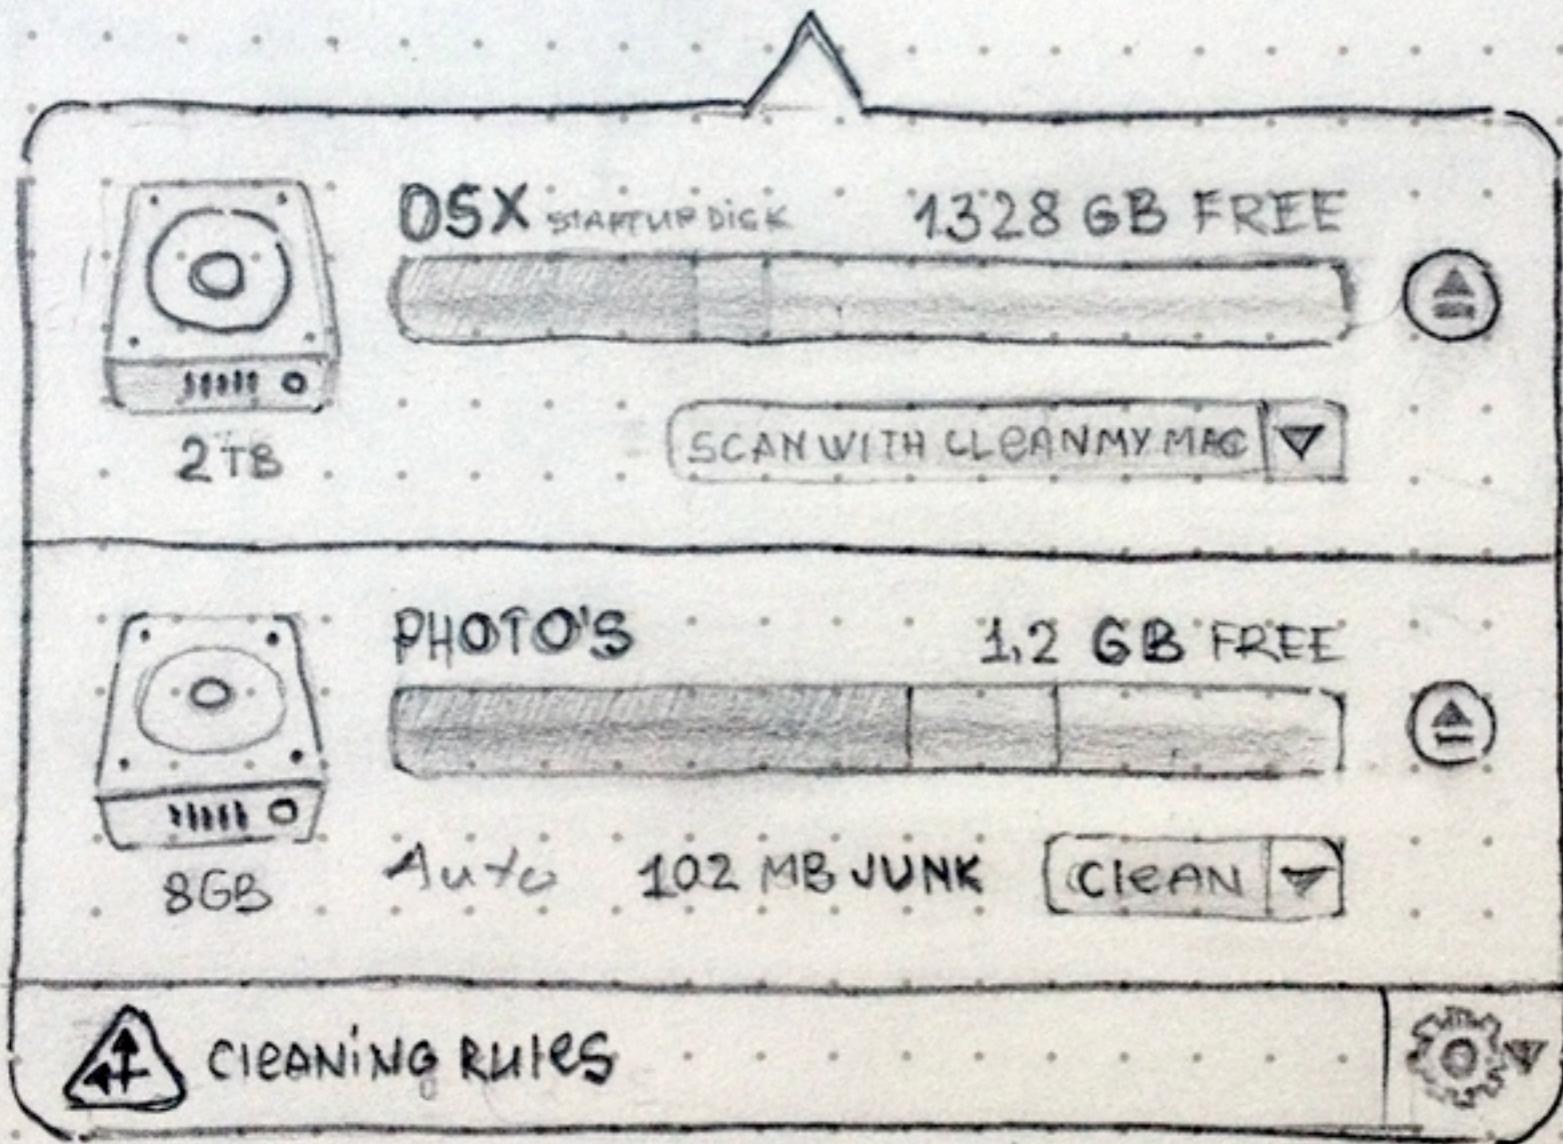 OSX STARTUP DISK 1328 GB FREE
2TB
SCAN WITH CLEANMY MAC
PHOTO'S 1,2 GB FREE
8GB
Auto 102 MB JUNK CleAN
CleANiNG RUleS